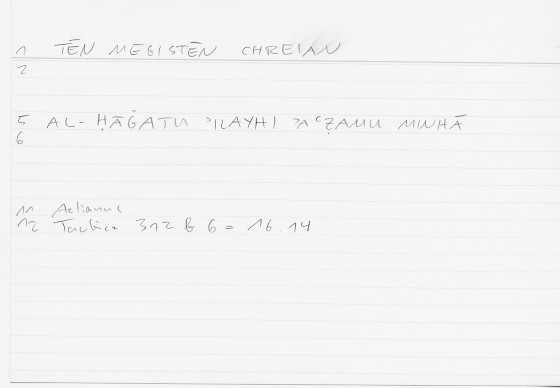 1 TĒN MEGISTĒN CHREIAN
2
5 AL-ḤĀĞATU ʾILAYHI ʾAʿẒAMU MINHĀ
6
11 Aelianus
12 Tactica 312 b 6 = 16.14